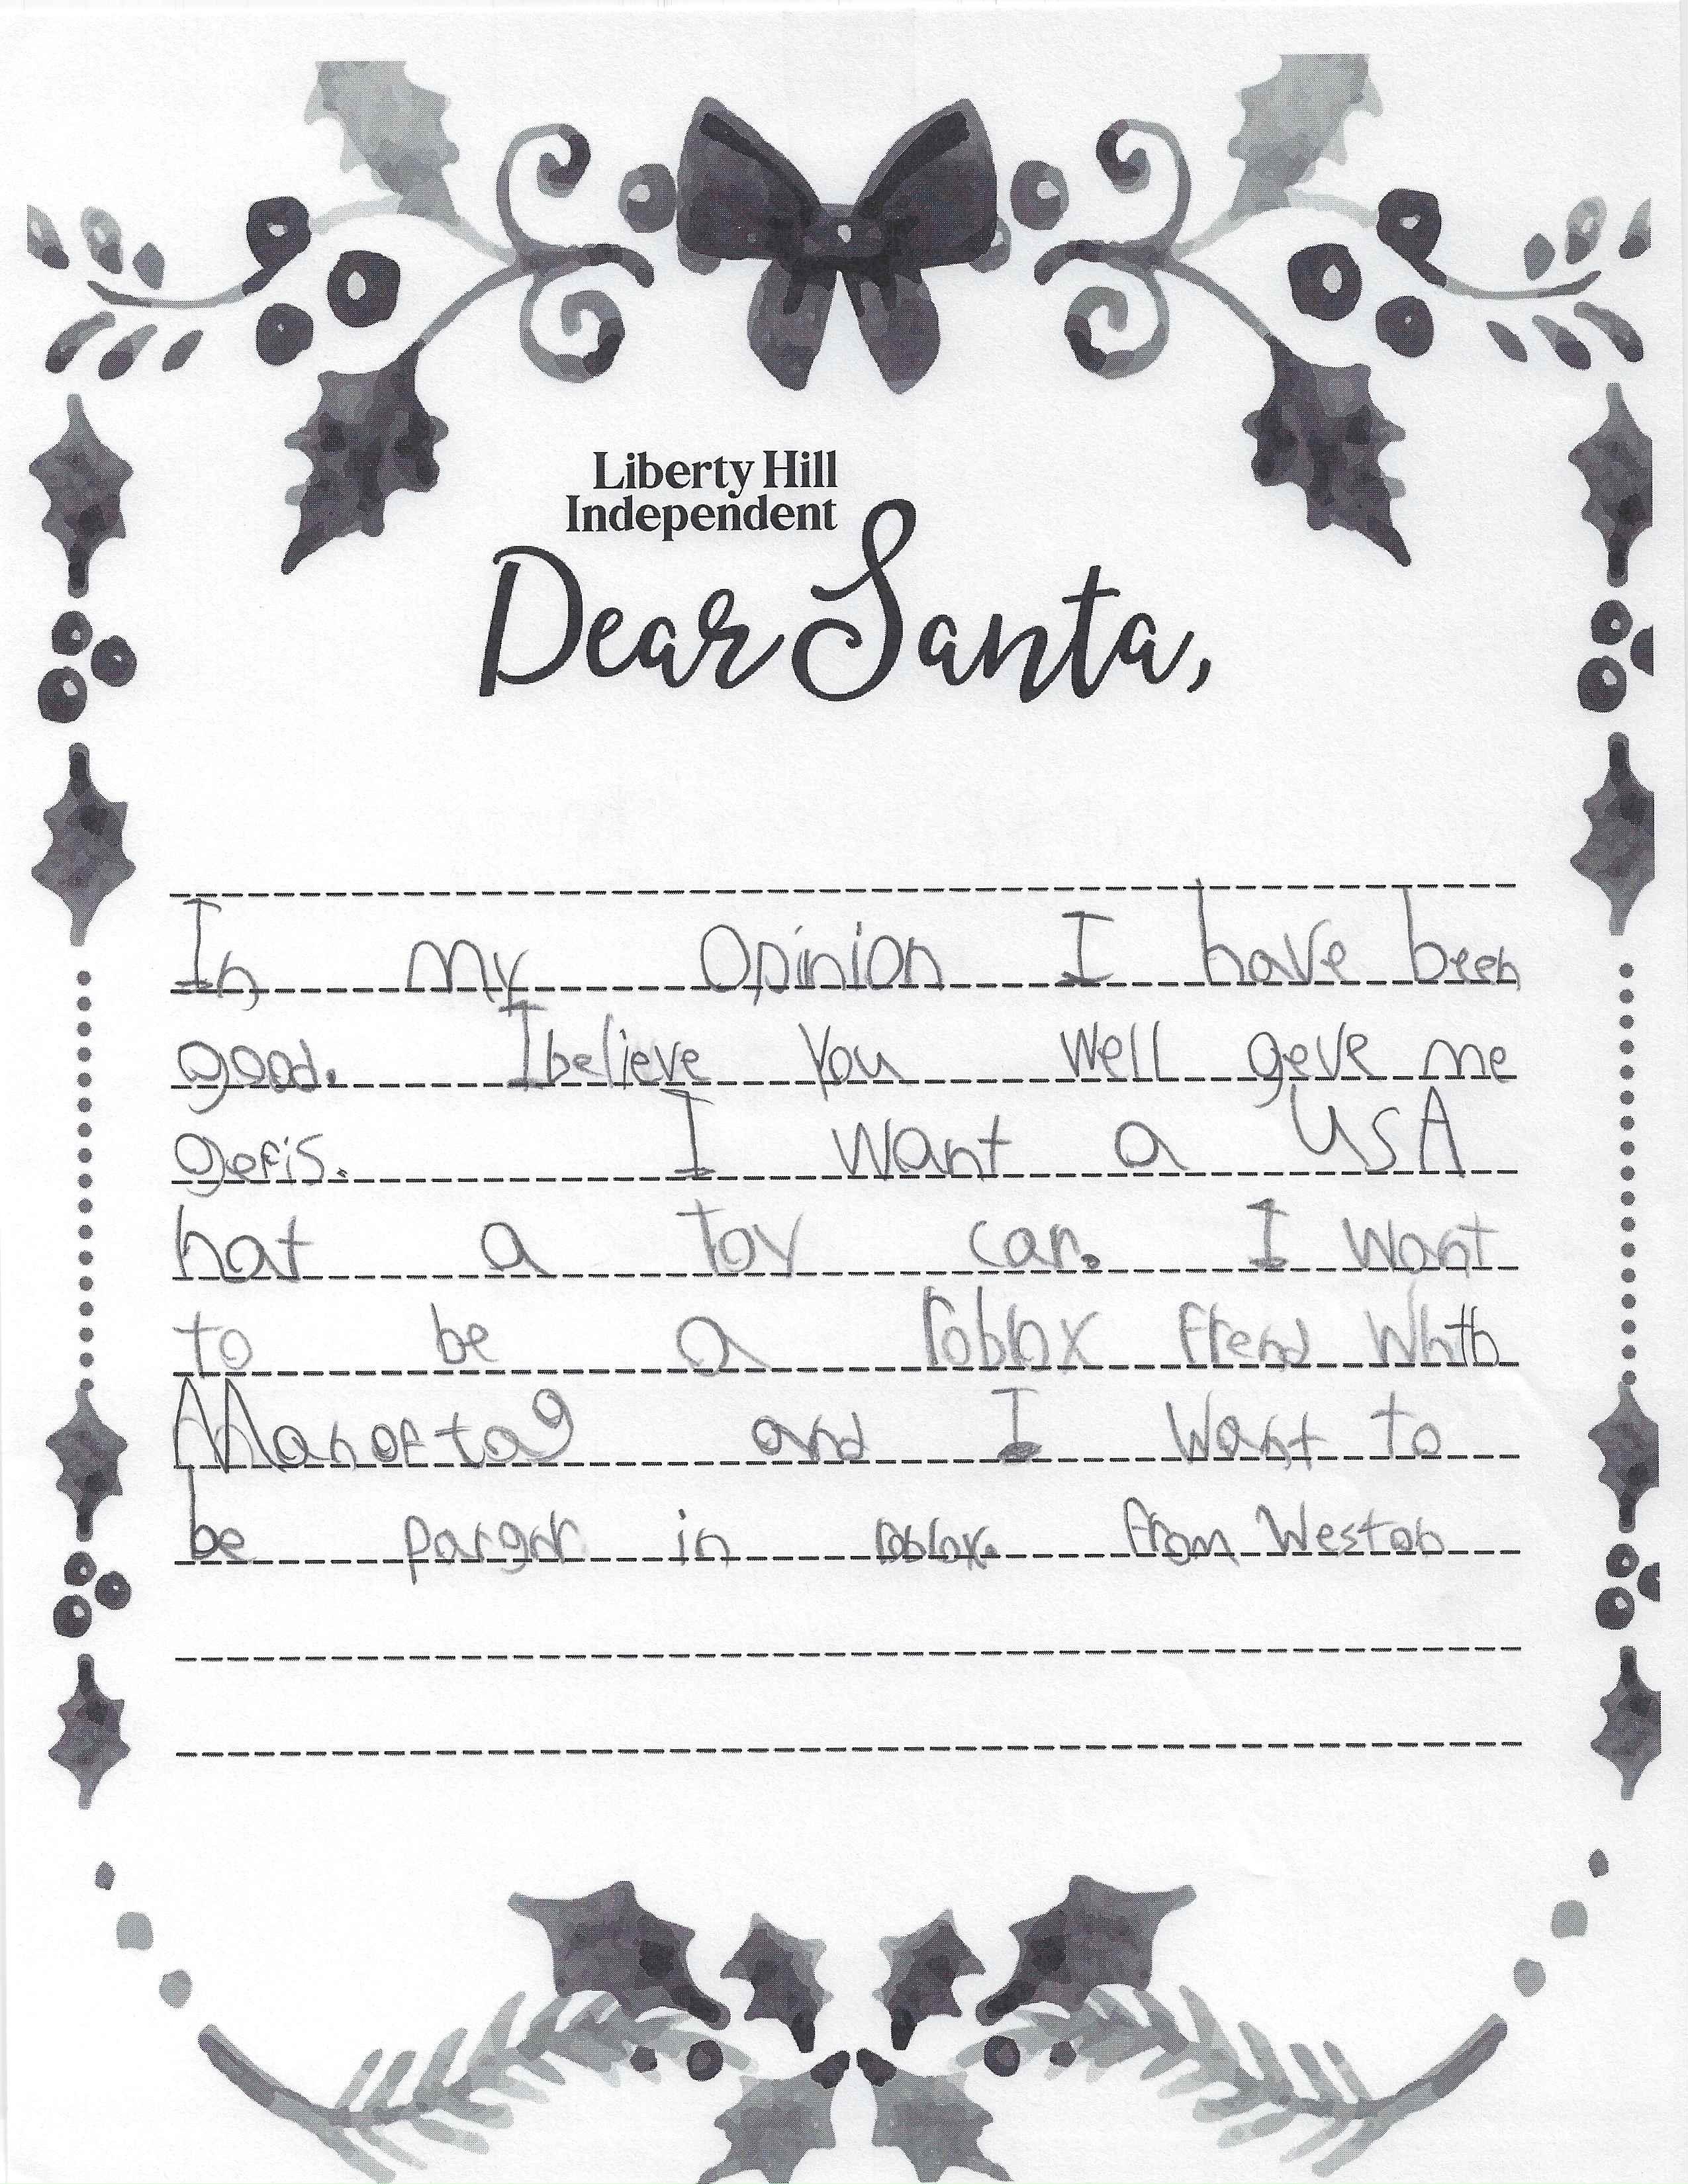 Liberty Hill
Independent
Dear Santa,
In my Opinion I have been
good. I believe you well geve me
gefis. I want a USA
hat a toy car. I want
to be a roblox frend Whith
and I want to
be in roblox. from Weston